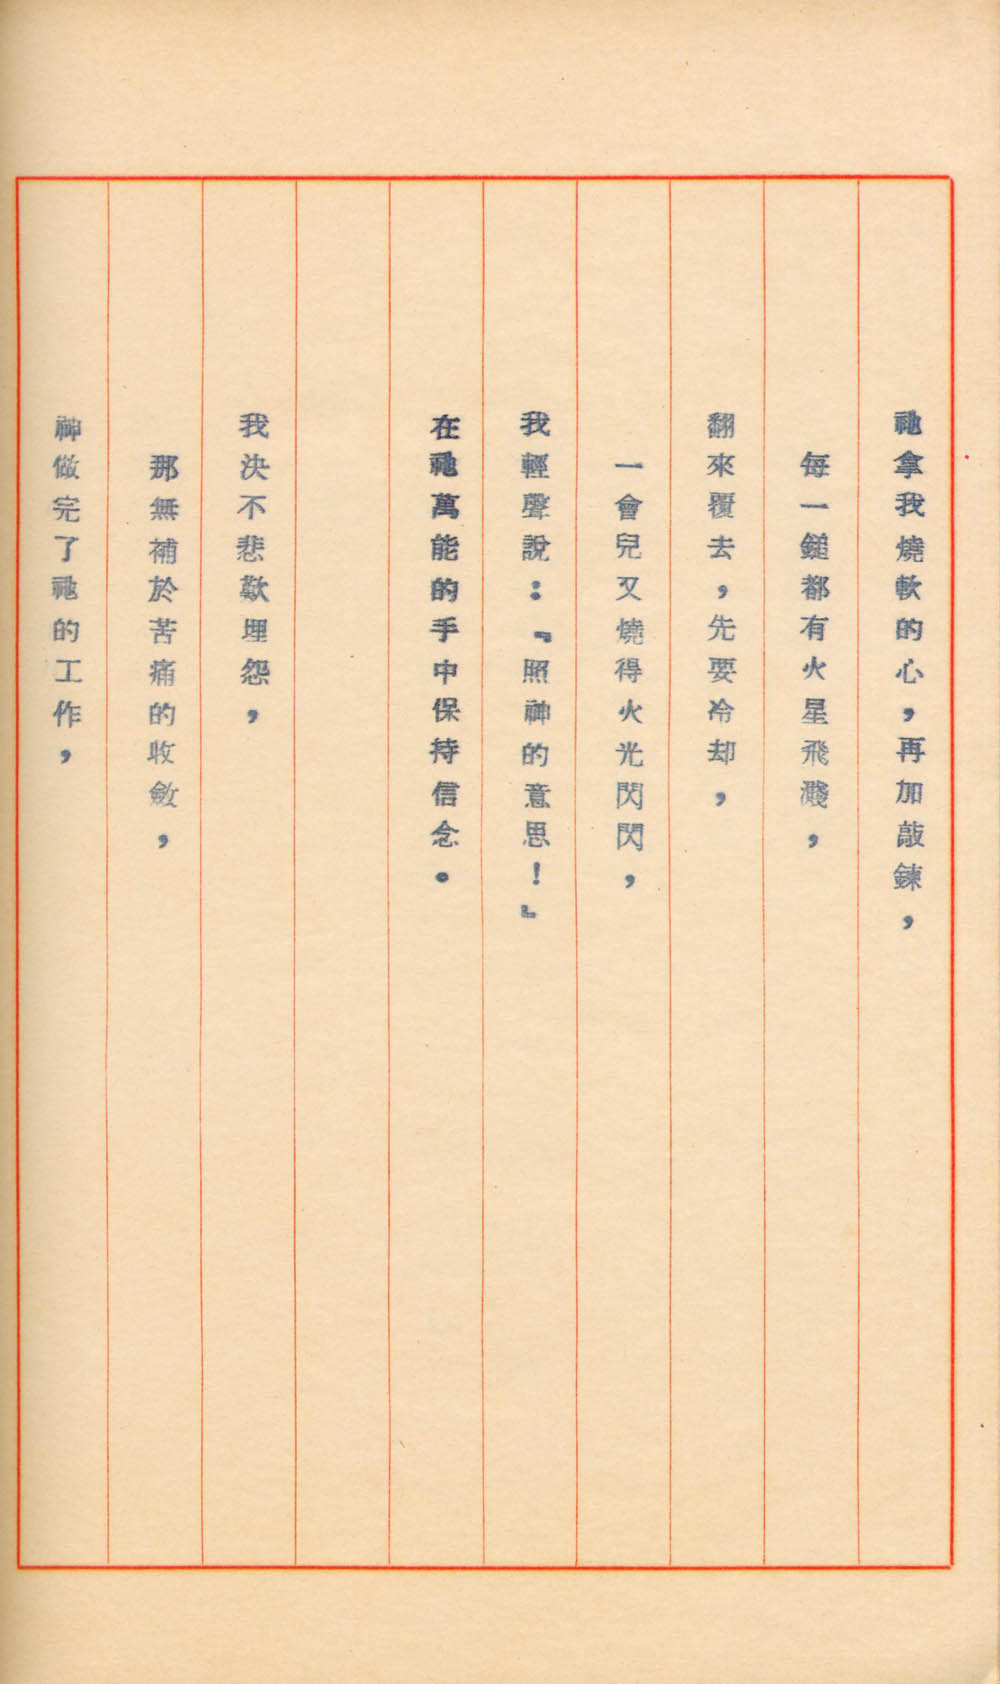 祂拿我燒軟的心，再加敲鍊，
每一鎚都有火星飛濺，
翻來覆去，先要冷却，
一會兒又燒得火光閃閃，
我輕聲說：『照神的意思！』
在祂萬能的手中保持信念。
我決不悲歎埋怨，
那無補於苦痛的收斂，
神做完了祂的工作，